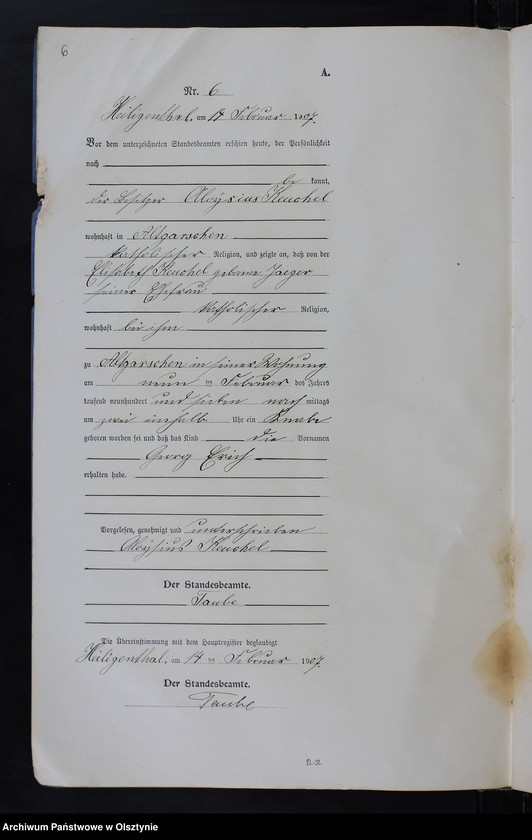 6
A.
Nr. 6
Heiligenthal, am 14 Februar 1907.
Vor dem unterzeichneten Standesbeamten erschien heute, der Persönlichkeit
nach
be kannt,
der Besitzer Aloysius Keuchel
wohnhaft in Altgarschen
katholischer Religion, und zeigte an, daß von der
Elisabeth Keuchel geborene Jaeger
seiner Ehefrau
katholischer Religion,
wohnhaft bei ihm
zu Altgarschen in seiner Wohnung
am neun ten Februar des Jahres
tausend neunhundert und sieben nach mittags
um zwei einhalb Uhr ein Knabe
geboren worden sei und daß das Kind die Vornamen
Georg Erich
erhalten habe.
Vorgelesen, genehmigt und unterschrieben
Aloysius Keuchel
Der Standesbeamte.
Taube
Die Übereinstimmung mit dem Hauptregister beglaubigt
Heiligenthal, am 14 ten Februar 1907.
Der Standesbeamte.
Taube
Archiwum Państwowe w Olsztynie